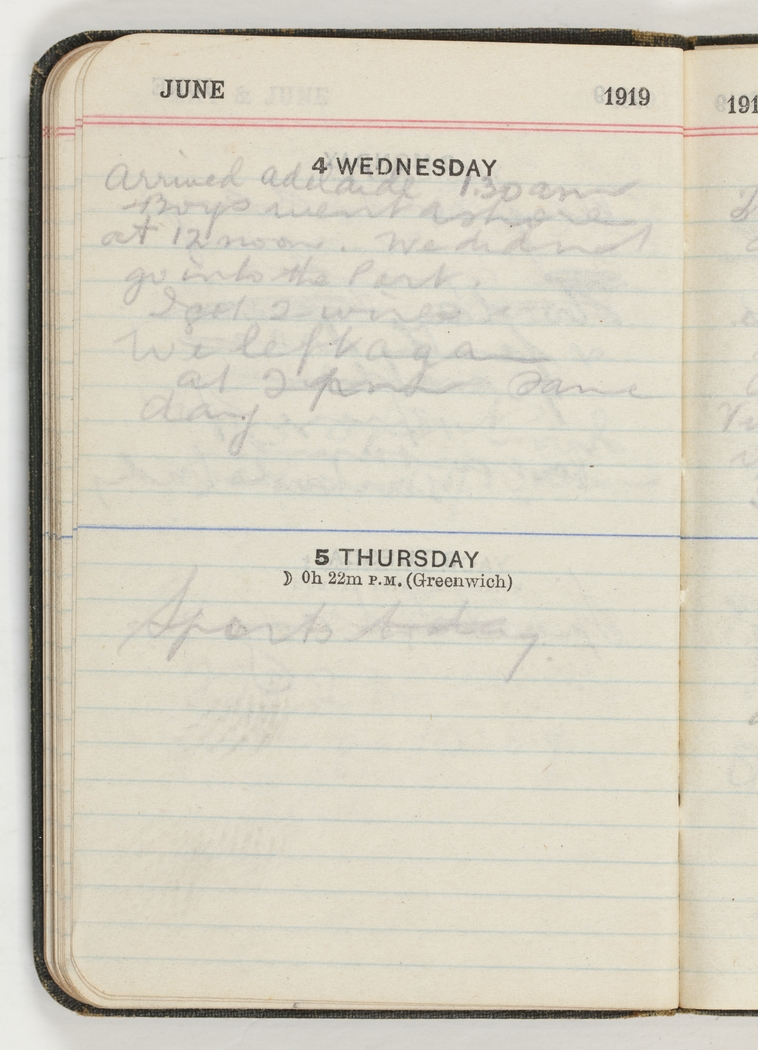 JUNE 1919
4 WEDNESDAY
Arrived adelaide 1.30 am
Boys went ashore
at 12 noon. We did not
go into the Port.
I got 2 wires
We left again
at 2 pm same
day
5 THURSDAY
☽ 0h 22m P.M. (Greenwich)
Sports today.
191